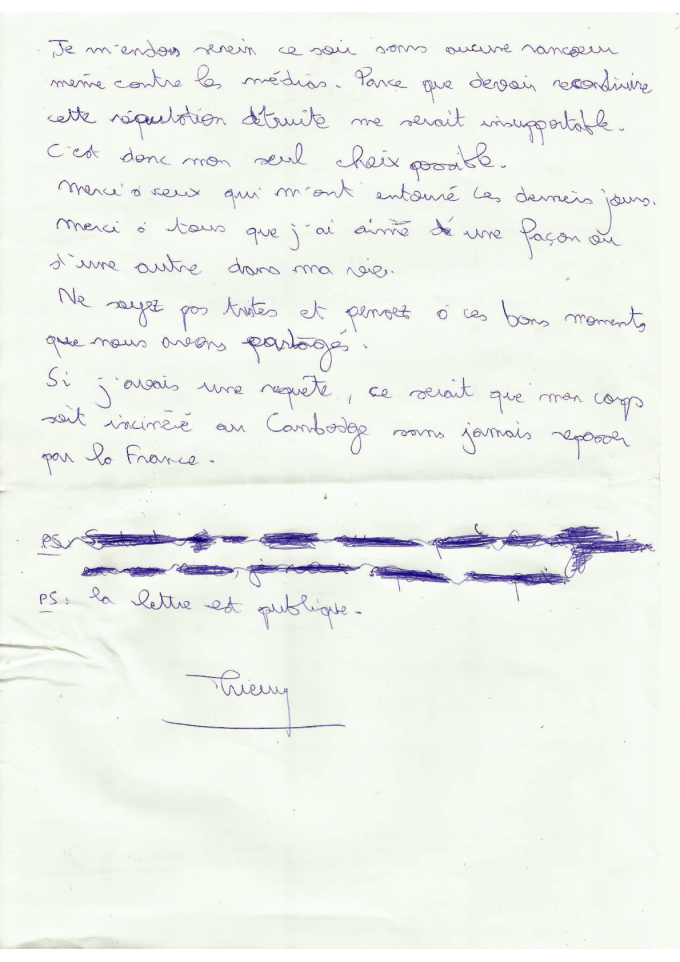 Je m'endors serein ce soir sans aucune rancoeur
même contre les médias. Parce que devoir reconstruire
cette réputation détruite me serait insupportable.
C'est donc mon seul choix possible.
Merci à ceux qui m'ont entouré ces derniers jours.
Merci à tous que j'ai aimé d'une façon ou
d'une autre dans ma vie.
Ne soyez pas tristes et pensez à ces bons moments
que nous avons partagés.
Si j'avais une requête, ce serait que mon corps
soit incinéré au Cambodge sans jamais repasser
par la France.
PS
PS: la lettre est publique.
Thierry